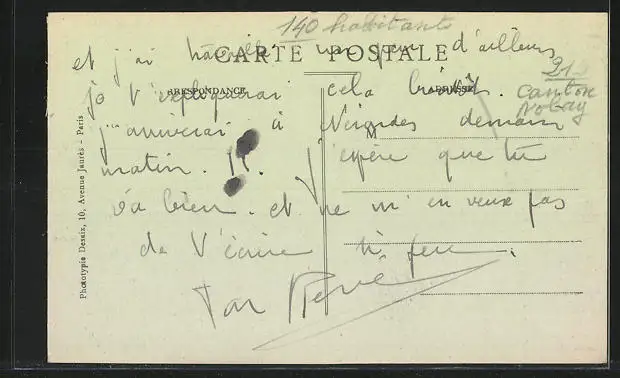 140 habitants
CARTE POSTALE
et j'ai travaillé un peu d'ailleurs
CORRESPONDANCE
ADRESSE
je t'expliquerai cela bientôt.
21
canton
Nolay
j'arriverai à demain
M
matin. J'espère que tu
va bien. et ne m'en veux pas
de t'écrire si peu.
Ton René
Phototypie Dessix, 10, Avenue Jaurès - Paris